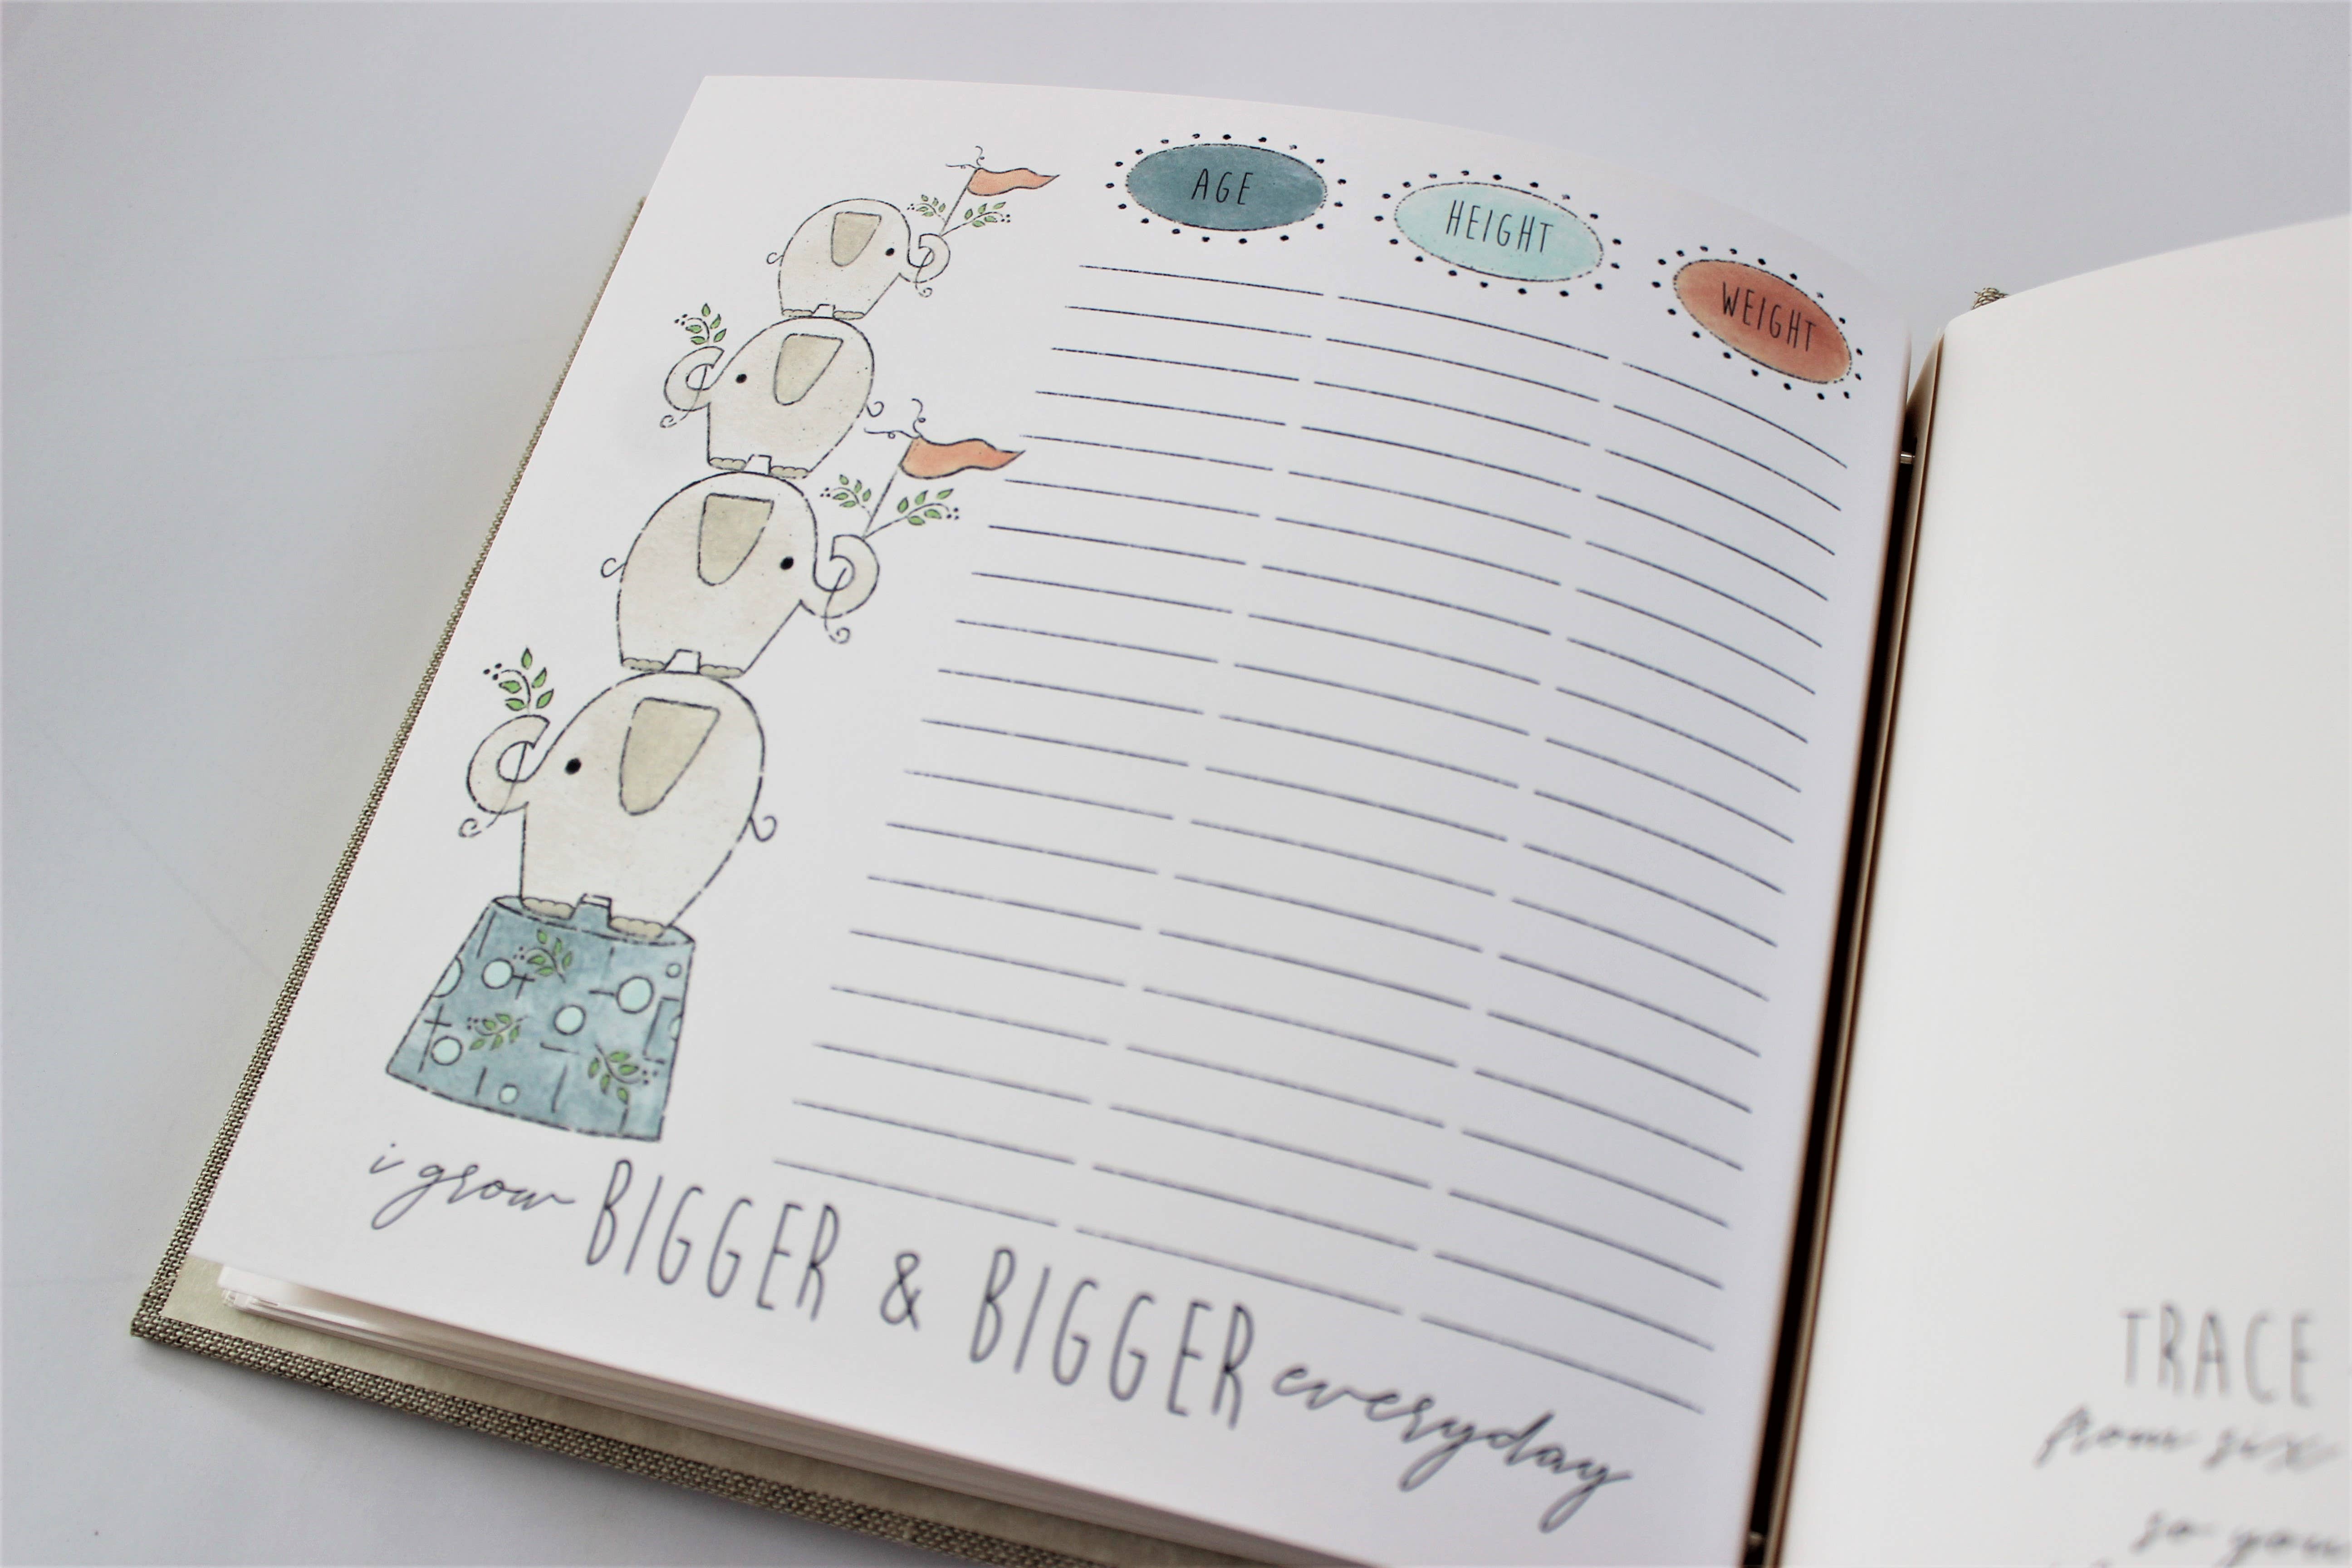 AGE
HEIGHT
WEIGHT
i grow BIGGER & BIGGER everyday
TRACE
from six
so you